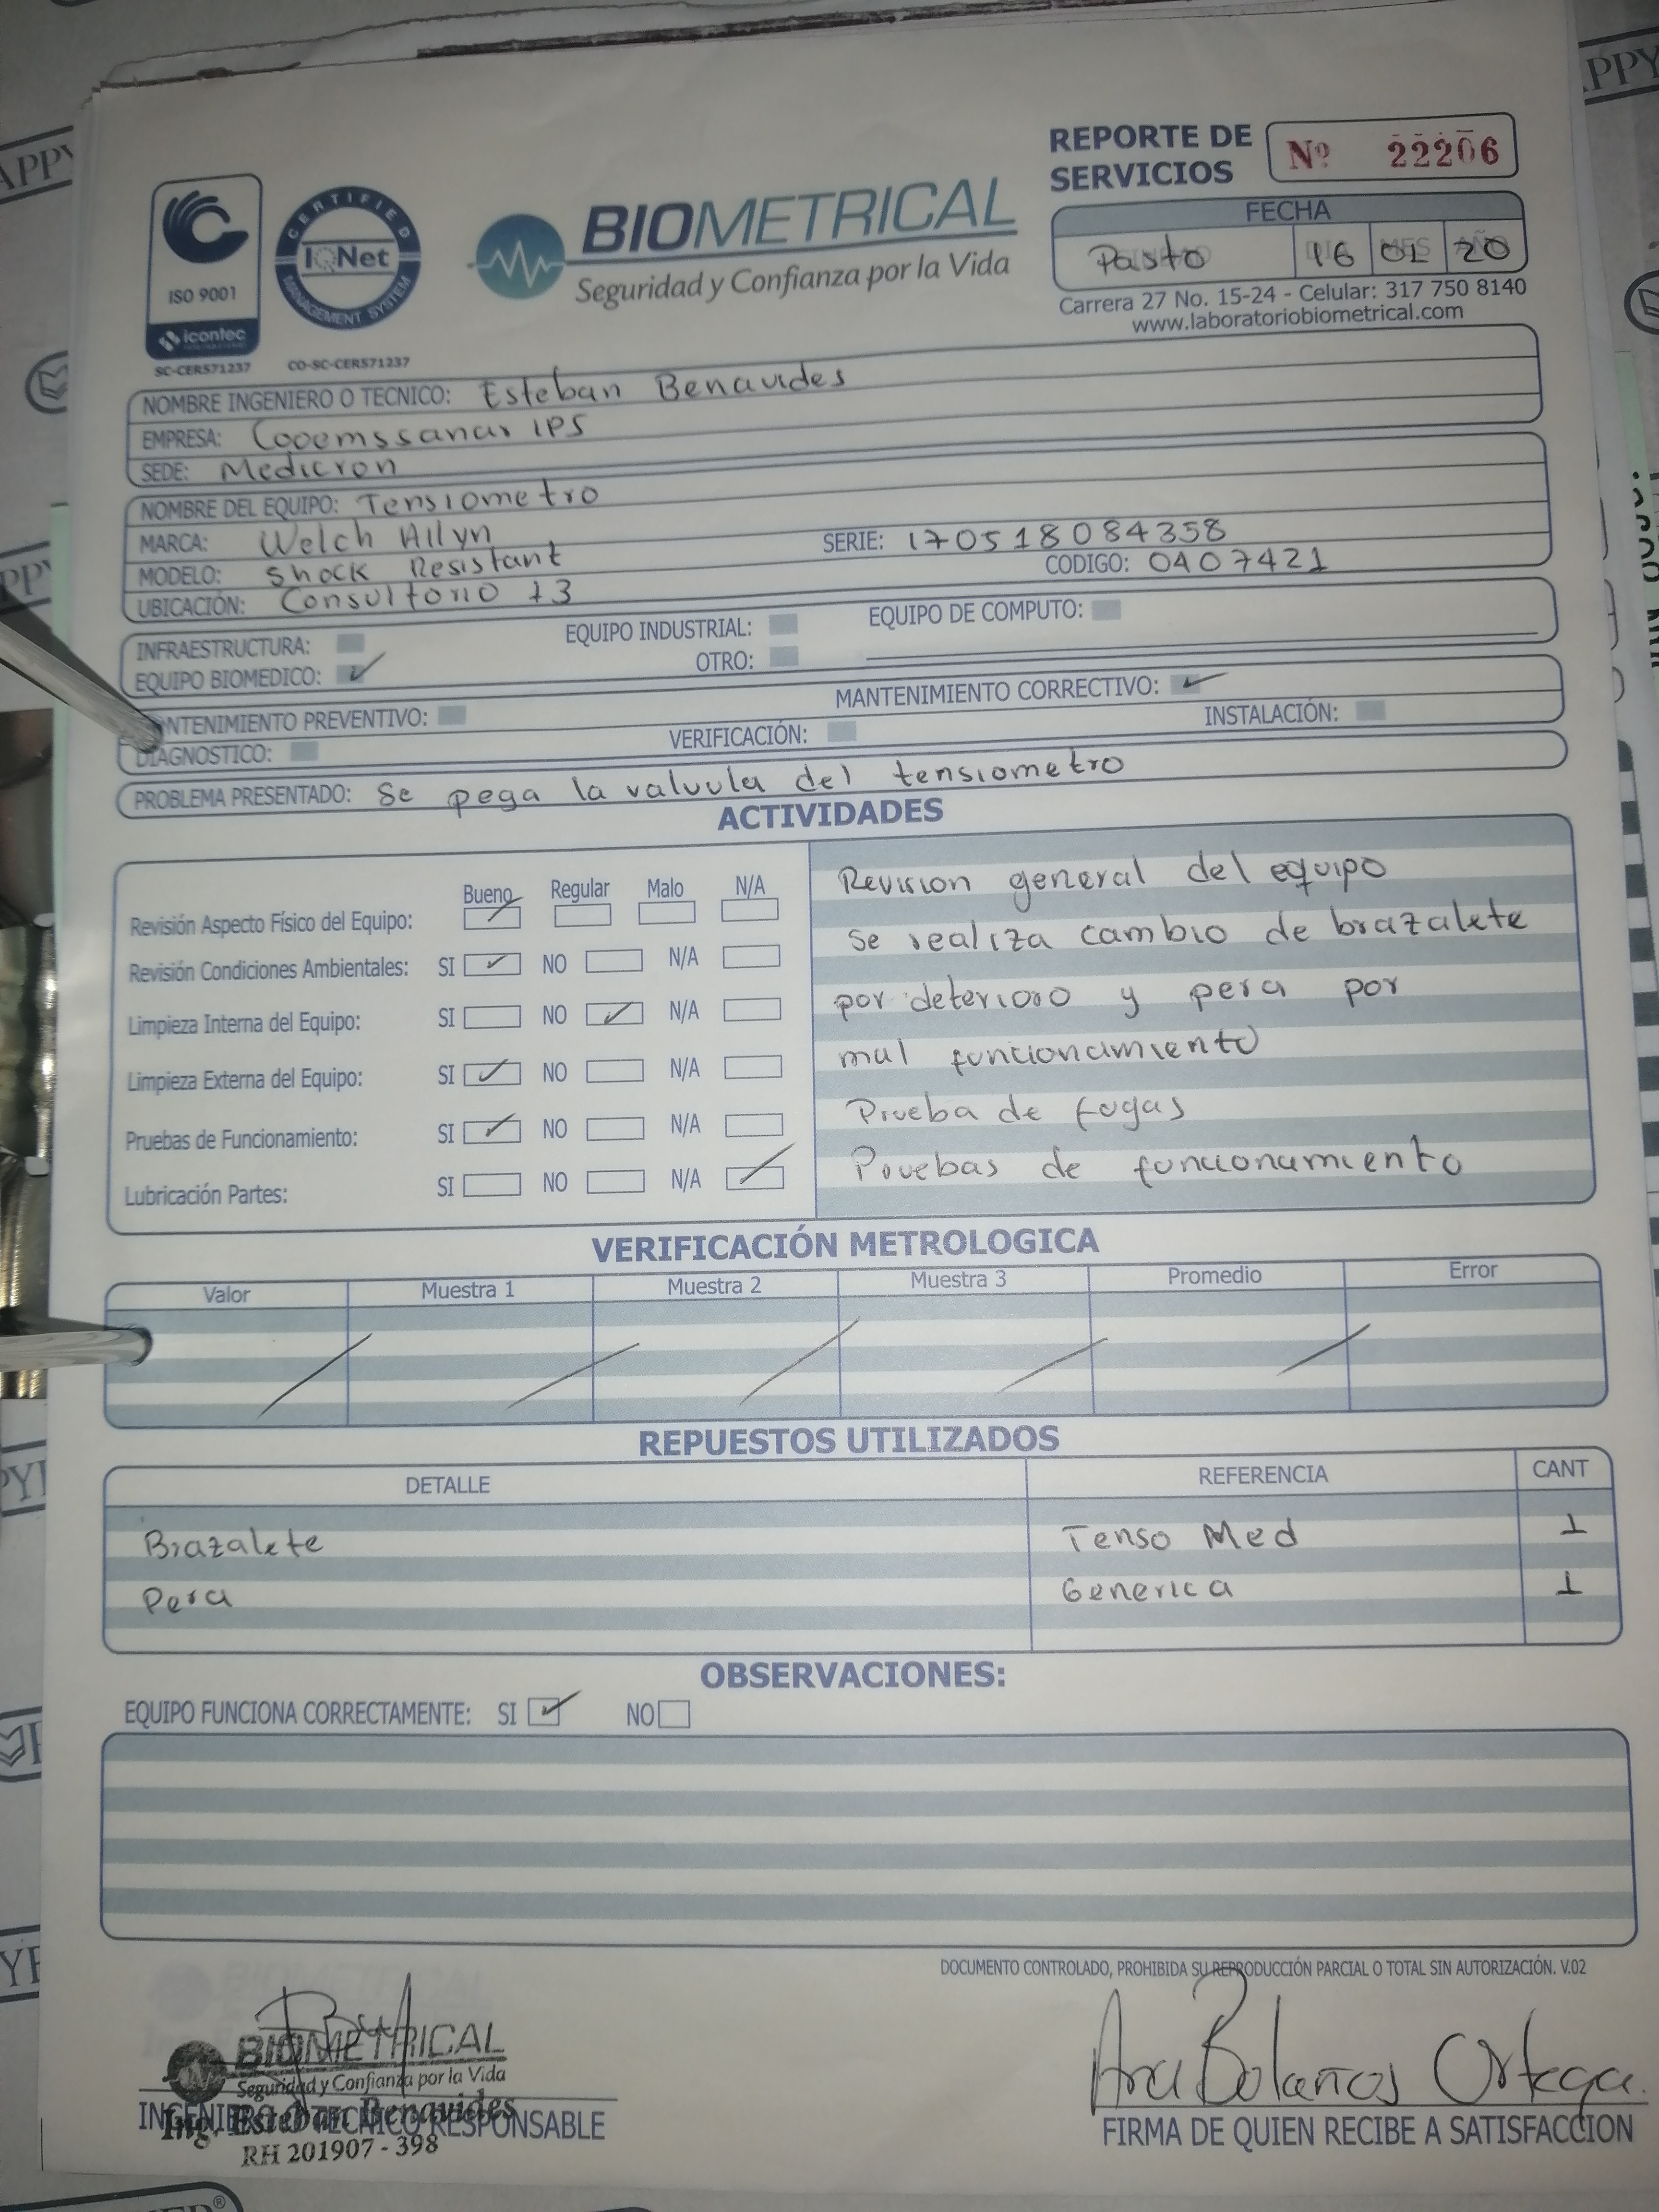 REPORTE DE
SERVICIOS
Nº 22206
CERTIFIED
IQNet
MANAGEMENT SYSTEM
ISO 9001
icontec
SC-CER571237
CO-SC-CER571237
BIOMETRICAL
Seguridad y Confianza por la Vida
FECHA
Pasto 16 01 20
Carrera 27 No. 15-24 - Celular: 317 750 8140
www.laboratoriobiometrical.com
NOMBRE INGENIERO O TECNICO: Esteban Benavides
EMPRESA: Cooemssanar IPS
SEDE: Medicron
NOMBRE DEL EQUIPO: Tensiometro
MARCA: Welch Allyn SERIE: 170518084358
MODELO: Shock Resistant CODIGO: 0407421
UBICACIÓN: Consultorio 13
INFRAESTRUCTURA: EQUIPO INDUSTRIAL: EQUIPO DE COMPUTO:
EQUIPO BIOMEDICO: ✓ OTRO:
NTENIMIENTO PREVENTIVO: MANTENIMIENTO CORRECTIVO: ✓
DIAGNOSTICO: VERIFICACIÓN: INSTALACIÓN:
PROBLEMA PRESENTADO: Se pega la valvula del tensiometro
ACTIVIDADES
Bueno Regular Malo N/A
Revisión Aspecto Físico del Equipo:
Revisión Condiciones Ambientales: SI ✓ NO N/A
Limpieza Interna del Equipo: SI NO ✓ N/A
Limpieza Externa del Equipo: SI ✓ NO N/A
Pruebas de Funcionamiento: SI ✓ NO N/A
Lubricación Partes: SI NO N/A
Revision general del equipo
se realiza cambio de brazalete
por deterioro y pera por
mal funcionamiento
Prueba de fugas
Pruebas de funcionamiento
VERIFICACIÓN METROLOGICA
Valor Muestra 1 Muestra 2 Muestra 3 Promedio Error
REPUESTOS UTILIZADOS
DETALLE REFERENCIA CANT
Brazalete Tenso Med 1
Pera Generica 1
OBSERVACIONES:
EQUIPO FUNCIONA CORRECTAMENTE: SI ✓ NO
DOCUMENTO CONTROLADO, PROHIBIDA SU REPRODUCCIÓN PARCIAL O TOTAL SIN AUTORIZACIÓN. V.02
BIOMETRICAL
Seguridad y Confianza por la Vida
Ing. Esteban Benavides
INGENIERO O TECNICO RESPONSABLE
RH 201907 - 398
Ana Bolaños Ortega.
FIRMA DE QUIEN RECIBE A SATISFACCION